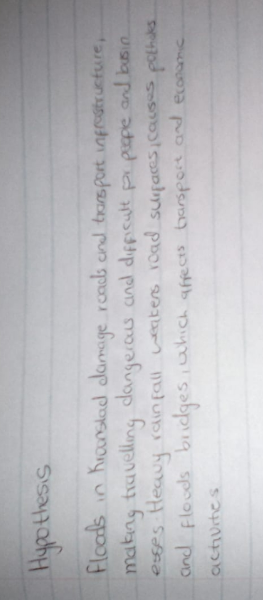 Hypothesis
Floods in Kroonstad damage roads and transport infrastructure,
making travelling dangerous and difficult for people and busin
esses Heavy rainfall weakens road surfaces, causes potholes
and floods bridges, which affects transport and economic
activites